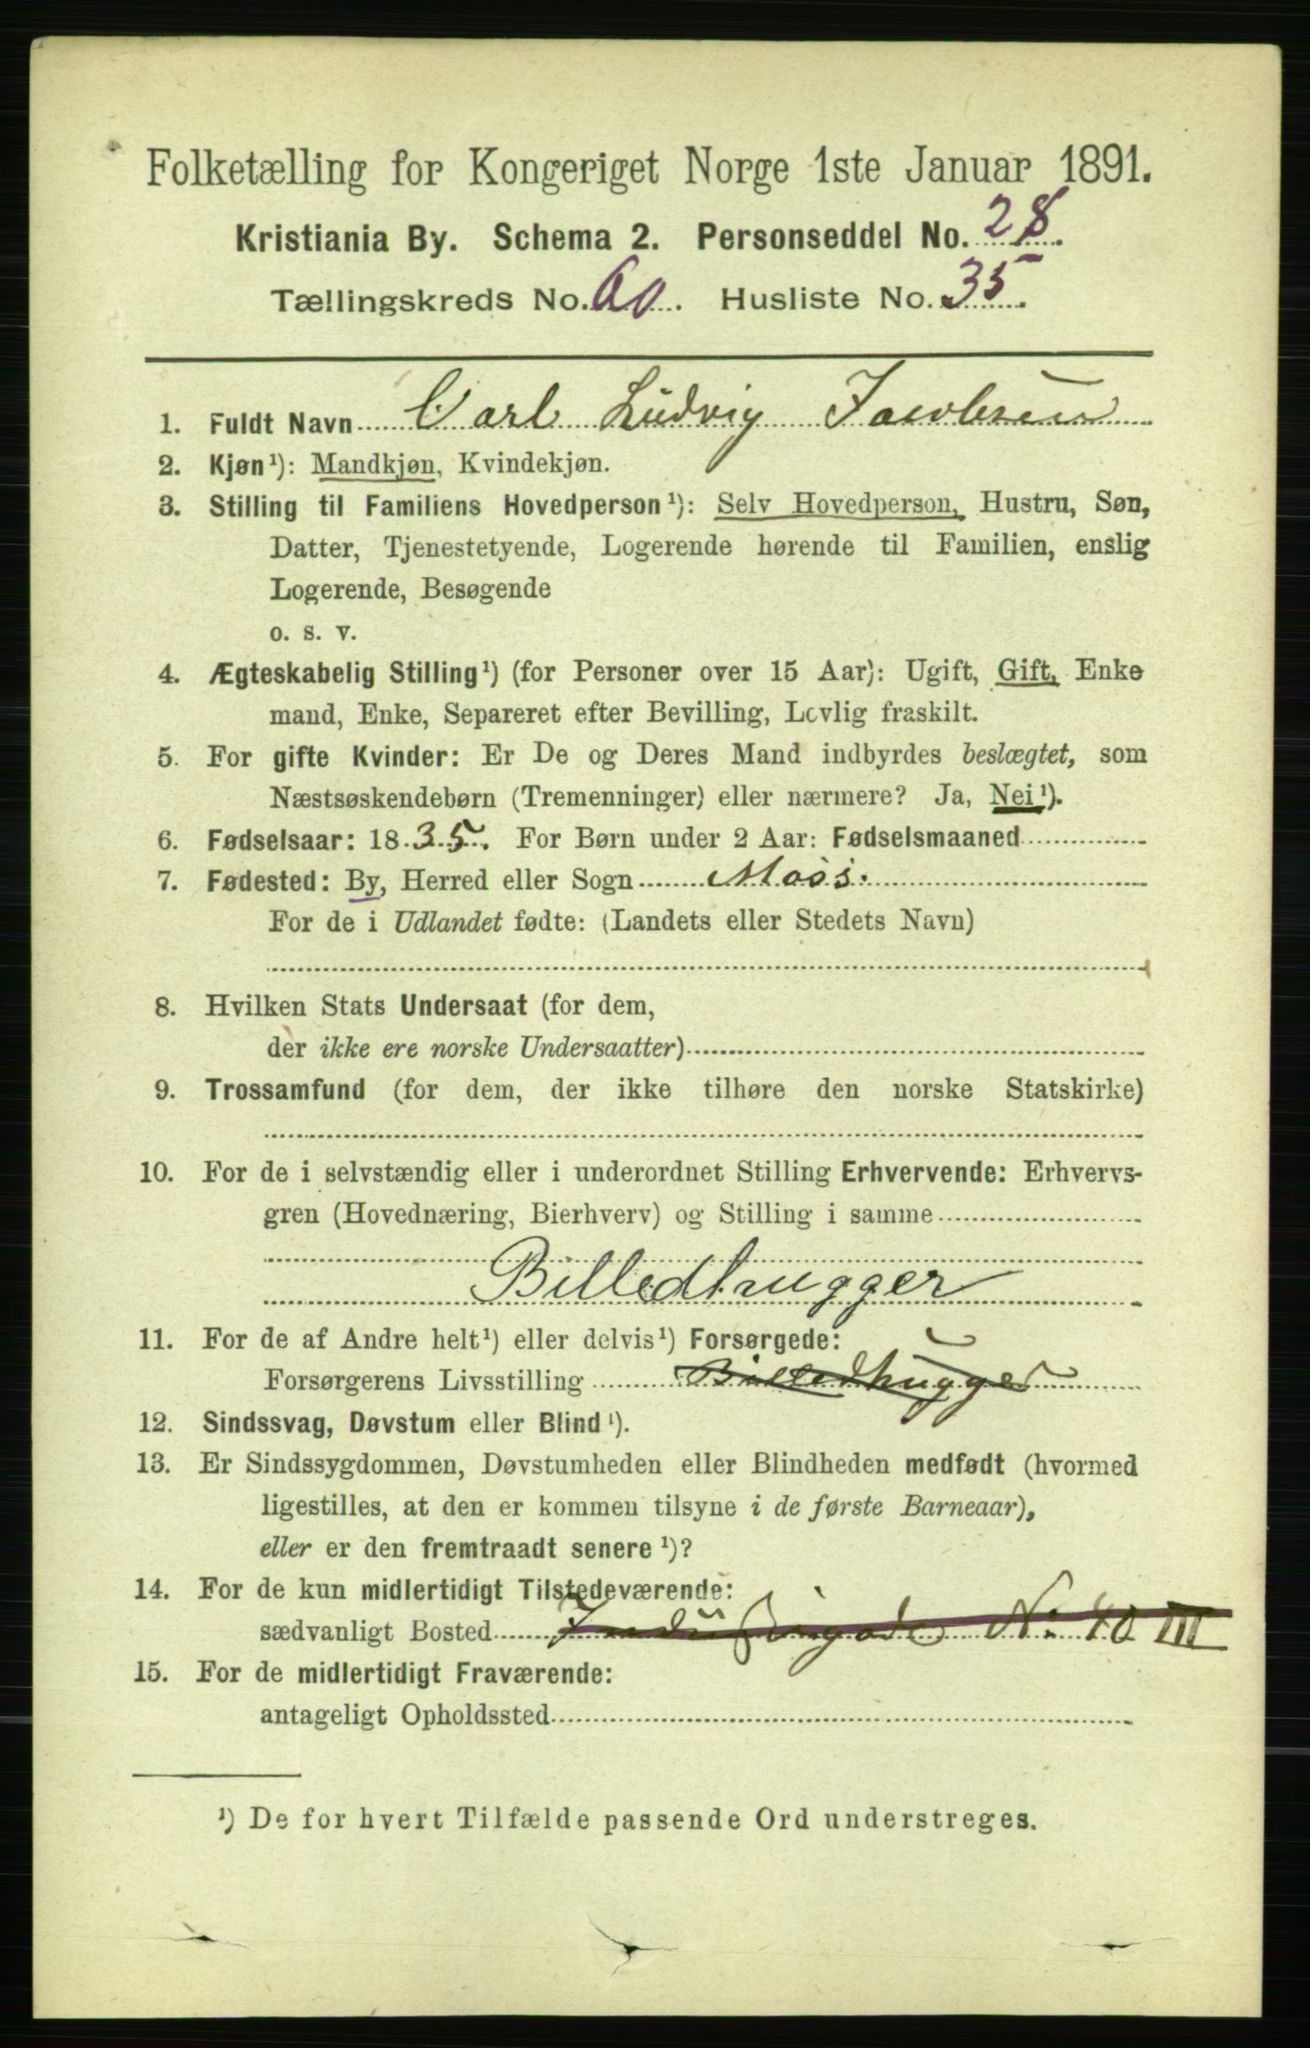 Folketælling for Kongeriget Norge 1ste Januar 1891.
Kristiania By. Schema 2. Personseddel No. 28.
Tællingskreds No. 60. Husliste No. 35.
1. Fuldt Navn Carl Ludvig Jacobsen
2. Kjøn¹): Mandkjøn, Kvindekjøn.
3. Stilling til Familiens Hovedperson¹): Selv Hovedperson, Hustru, Søn,
Datter, Tjenestetyende, Logerende hørende til Familien, enslig
Logerende, Besøgende
o. s. v.
4. Ægteskabelig Stilling¹) (for Personer over 15 Aar): Ugift, Gift, Enke
mand, Enke, Separeret efter Bevilling, Lovlig fraskilt.
5. For gifte Kvinder: Er De og Deres Mand indbyrdes beslægtet, som
Næstsøskendebørn (Tremenninger) eller nærmere? Ja, Nei¹).
6. Fødselsaar: 1835. For Børn under 2 Aar: Fødselsmaaned
7. Fødested: By, Herred eller Sogn Moss.
For de i Udlandet fødte: (Landets eller Stedets Navn)
8. Hvilken Stats Undersaat (for dem,
der ikke ere norske Undersaatter)
9. Trossamfund (for dem, der ikke tilhøre den norske Statskirke)
10. For de i selvstændig eller i underordnet Stilling Erhvervende: Erhvervs-
gren (Hovednæring, Bierhverv) og Stilling i samme
Billedhugger
11. For de af Andre helt¹) eller delvis¹) Forsørgede:
Forsørgerens Livsstilling Billedhugger
12. Sindssvag, Døvstum eller Blind¹).
13. Er Sindssygdommen, Døvstumheden eller Blindheden medfødt (hvormed
ligestilles, at den er kommen tilsyne i de første Barneaar),
eller er den fremtraadt senere¹)?
14. For de kun midlertidigt Tilstedeværende:
sædvanligt Bosted Industrigade N: 40 III
15. For de midlertidigt Fraværende:
antageligt Opholdssted
¹) De for hvert Tilfælde passende Ord understreges.